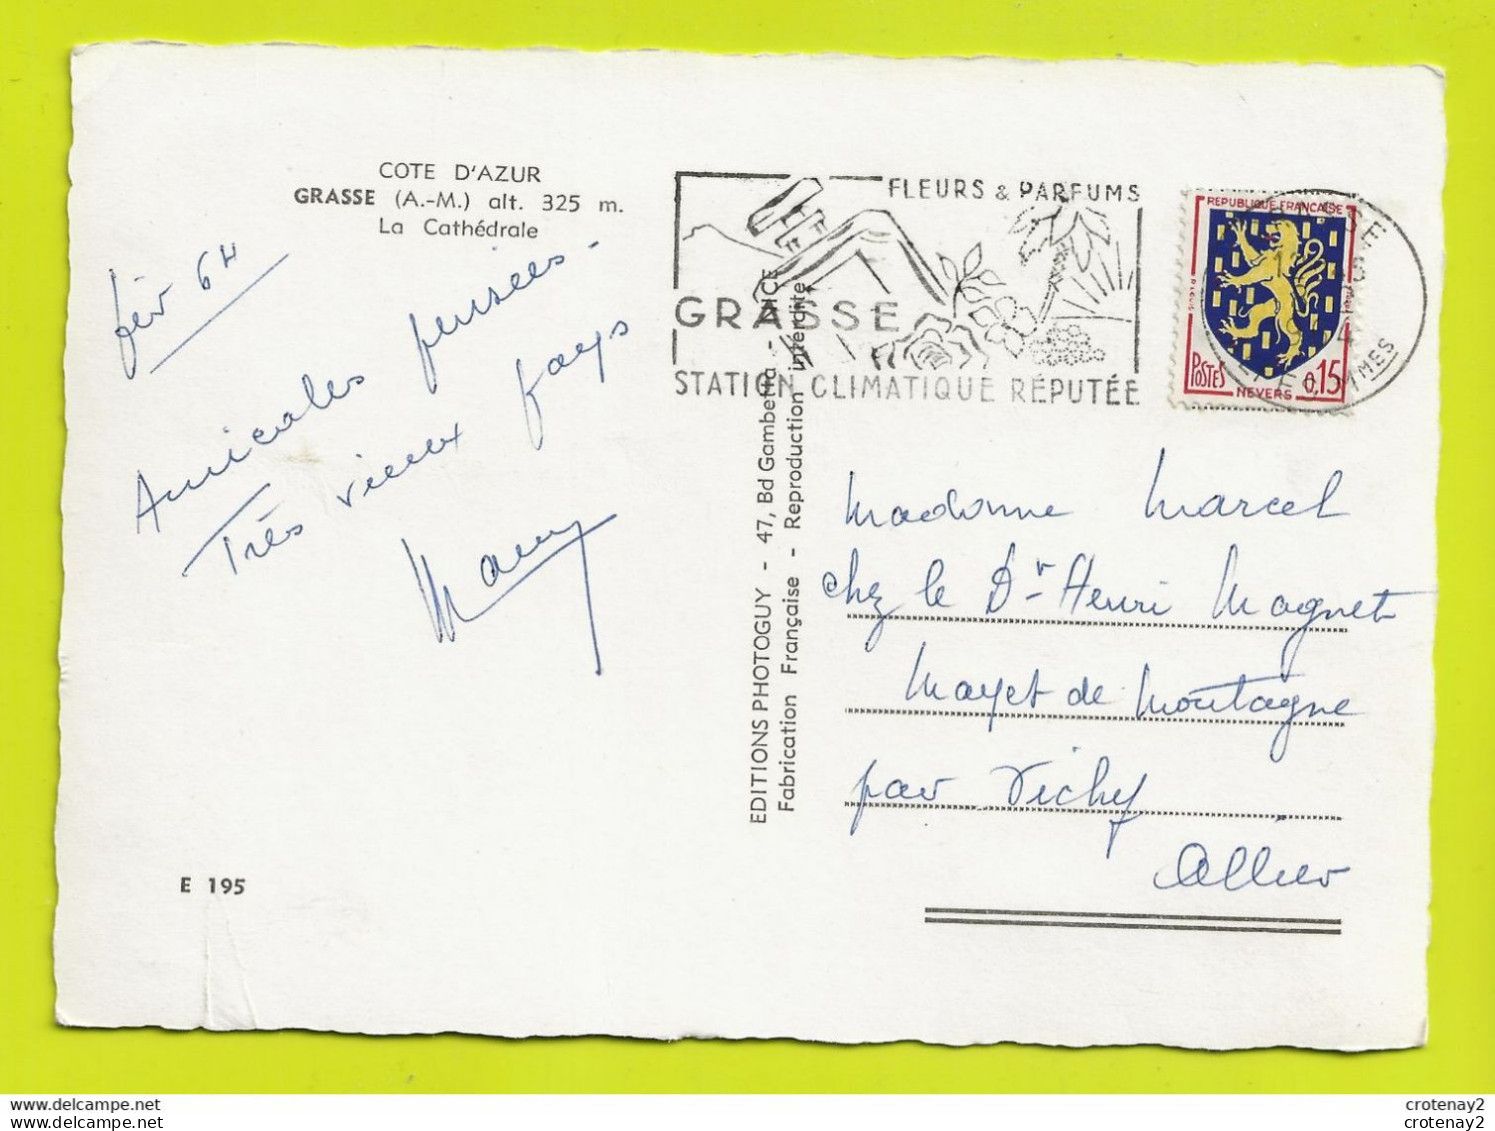 COTE D'AZUR
GRASSE (A.-M.) alt. 325 m.
La Cathédrale
fév 64
Amicales pensées -
Très vieux pays
FLEURS & PARFUMS
GRASSE
STATION CLIMATIQUE RÉPUTÉE
REPUBLIQUE FRANÇAISE
POSTES 0,15
NEVERS
EDITIONS PHOTOGUY - 47, Bd Gambetta - NICE
Fabrication Française - Reproduction interdite
Madame Marcel
chez le Dr Henri Magnet
Mayet de Montagne
par Vichy
Allier
E 195
www.delcampe.net
crotenay2
crotenay2